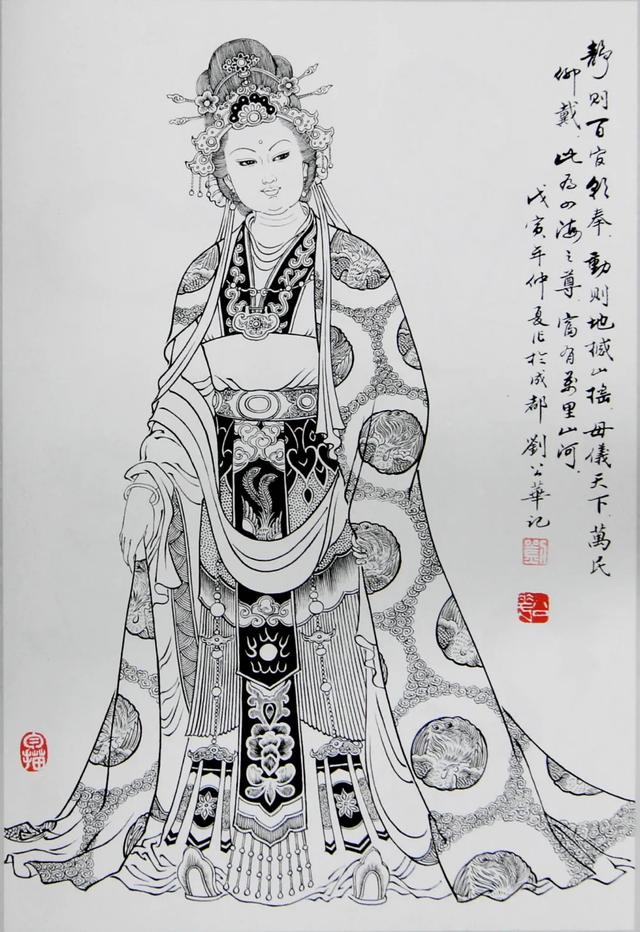 靜则百官朝奉.動则地撼山摇.母儀天下.萬民
仰戴.此为四海之尊.富有萬里山河.
戊寅年仲夏作於成都劉公華记
白描